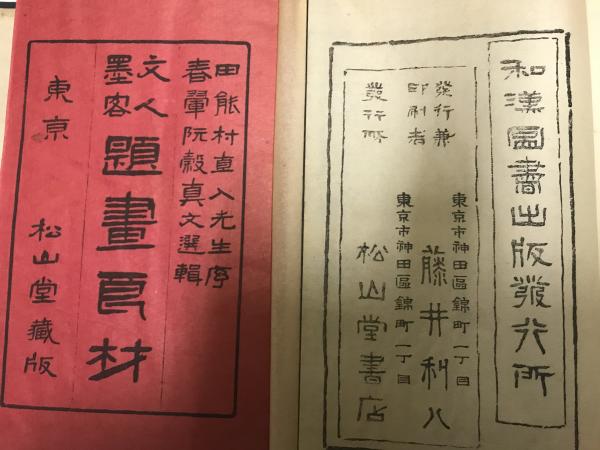 和漢圖書出版發行所
發行兼
印刷者
東京市神田區錦町一丁目
藤井利八
發行所
東京市神田區錦町一丁目
松山堂書店
田能村直入先生序
春暈阮穀真文選輯
文人
墨客
題畫良材
東京 松山堂藏版